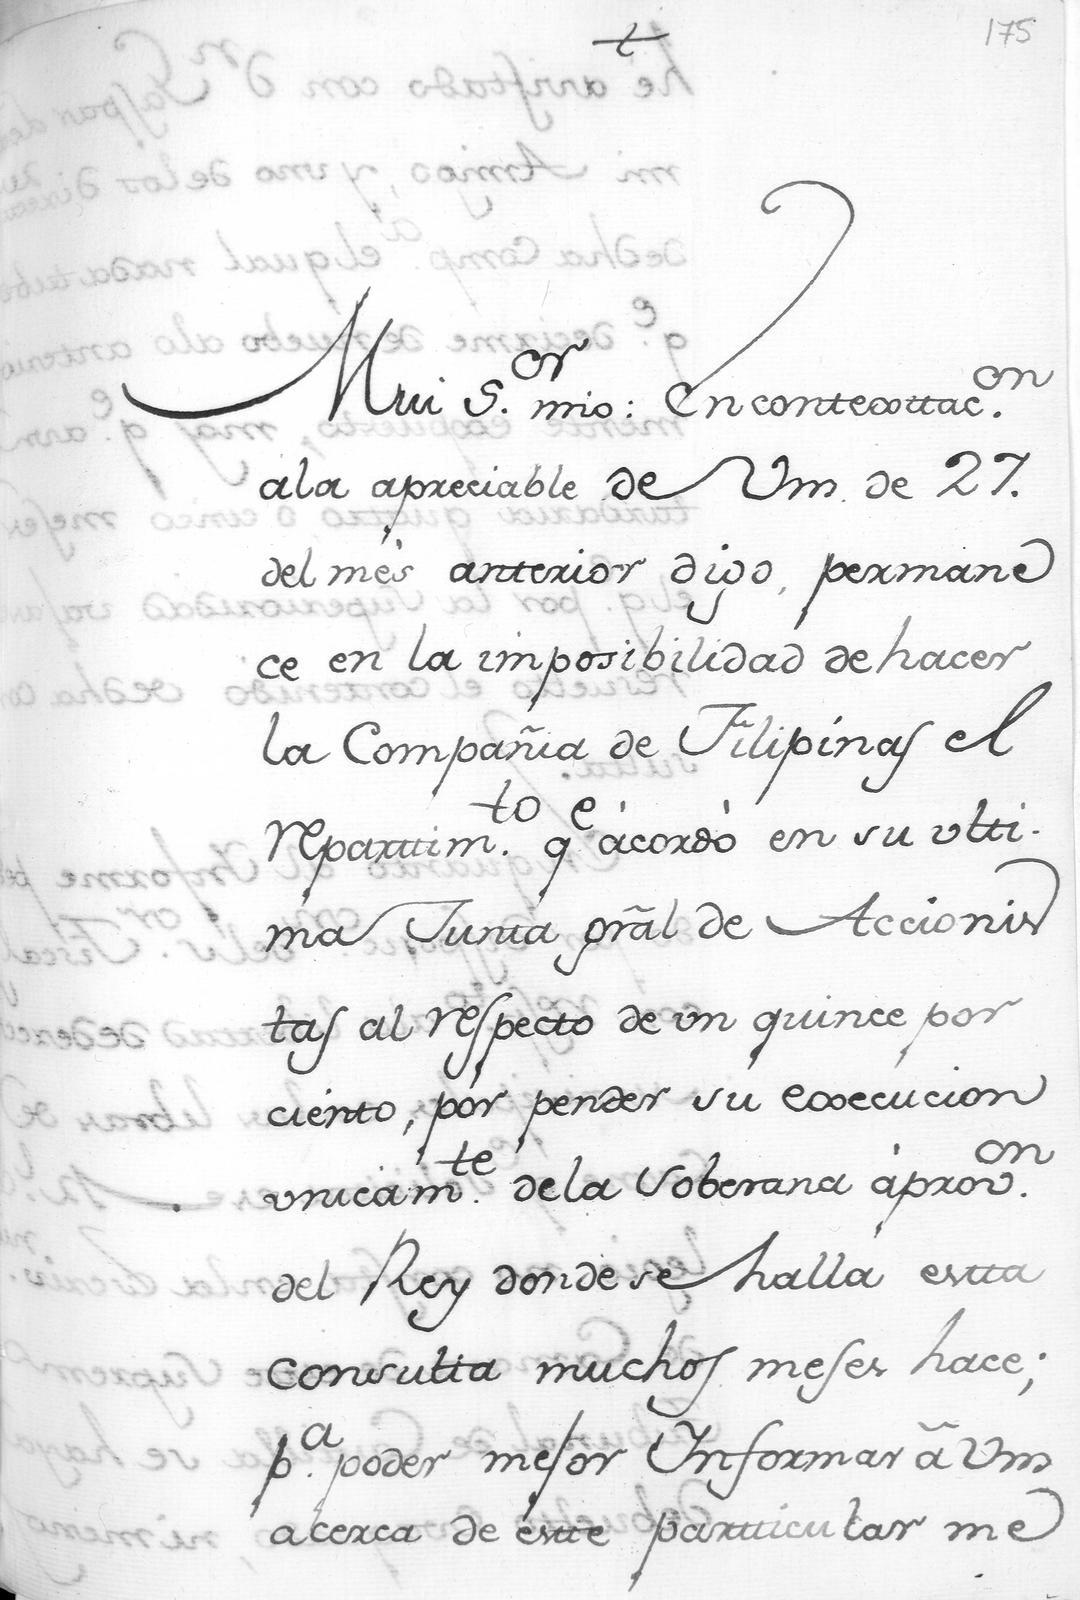 175
Mui S.or mio: En contextac.on
ala apreciable de Vm. de 27.
del més anterior digo, permane
ce en la imposibilidad de hacer
la Compañia de Filipinas el
repartim.to qe ácordó en su ulti-
ma Junta gñal de Accionis
tas al respecto de un quince por
ciento, por pender su execucion
unicam.te de la Soberana áprov.on
del Rey donde se halla esta
consulta muchos meses hace;
p.a poder mejor Informar ã Vm
acerca de éste particular me